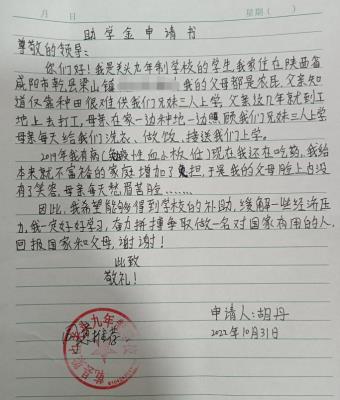 月 日 星期( )
助学金申请书
尊敬的领导:
你们好!我是关头九年制学校的学生,我家住在陕西省
咸阳市乾县梁山镇 我的父母都是农民,父亲知
道仅靠种田很难供我们兄妹三人上学,父亲这几年就到工
地上去打工,母亲在家一边种地一边照顾我们兄妹三人上学
母亲每天给我们洗衣、做饭,接送我们上学。
2019年我有病(急性血小板低)现在我还在吃药,我给
本来就不富裕的家庭增加了负担,于是我的父母脸上也没
有了笑容,母亲每天愁眉苦脸……
因此,我希望能够得到学校的补助,缓解一些经济压
力,我一定好好学习,奋力拼搏争取做一名对国家有用的人,
回报国家和父母,谢谢!
此致
敬礼!
申请人:胡丹
2022年10月31日
九年